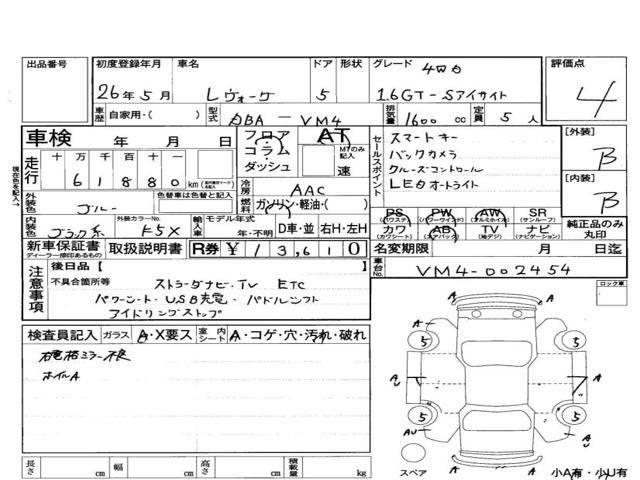 出品番号
初度登録年月 車名 ドア 形状 グレード 評価点
26年5月 レヴォーグ 5 4WD 1.6GT-Sアイサイト 4
車歴 自家用・( ) 型式 DBA-VM4 排気量 1600 cc 定員 5 人
車検 年 月 日
フロア コラム ダッシュ AT MTのみ記入 速
セールスポイント
スマートキー
バックカメラ
クルーズコントロール
LEDオートライト
[外装] B
[内装] B
走行 十 万 千 百 十 一
6 1 8 8 0 km
冷房 AAC
燃料 ガソリン・軽油・( )
外装色 ブルー 色替車は色替と記入
内装色 ブラック系 外装カラーNo. K5X
輸入車 モデル年式 年・不明 D車・並 右H・左H
PS (パワステ) PW (パワーウインド) AW (アルミホイル) SR (サンルーフ)
カワ (カワシート) AB (エアバック) TV (地デジ) ナビ (ナビゲーション)
純正品のみ丸印
現在色を記入
新車保証書 ディーラー捺印あるもの 取扱説明書 R券 ¥13,610
名変期限 月 日迄
車台No. VM4-002454
注意事項
後日品【 】
不具合箇所等
ストラーダナビ・TV ETC
パワーシート・USB充電・パドルシフト
アイドリングストップ
ロック車
検査員記入 ガラス A・X要ス 室内シート A・コゲ・穴・汚れ・破れ
ホイルA
A
5 5
A A
5 5
A
スペア A A 小A有・小U有
長さ cm 幅 cm 高さ cm 積載量 kg